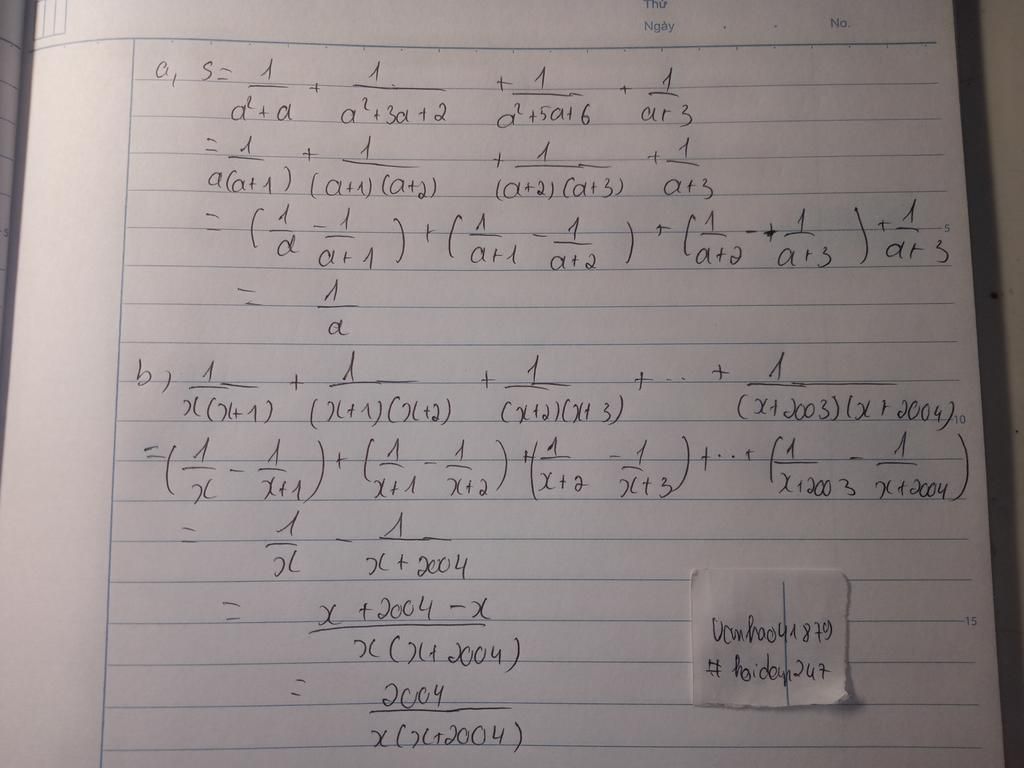 Thứ
Ngày . . No.
a, S = 1/(a²+a) + 1/(a²+3a+2) + 1/(a²+5a+6) + 1/(a+3)
= 1/(a(a+1)) + 1/((a+1)(a+2)) + 1/((a+2)(a+3)) + 1/(a+3)
= (1/a - 1/(a+1)) + (1/(a+1) - 1/(a+2)) + (1/(a+2) - 1/(a+3)) + 1/(a+3)
5
= 1/a
b, 1/(x(x+1)) + 1/((x+1)(x+2)) + 1/((x+2)(x+3)) + ... + 1/((x+2003)(x+2004))
10
= (1/x - 1/(x+1)) + (1/(x+1) - 1/(x+2)) + (1/(x+2) - 1/(x+3)) + ... + (1/(x+2003) - 1/(x+2004))
= 1/x - 1/(x+2004)
= (x+2004-x)/(x(x+2004))
15
= 2004/(x(x+2004))
Vanhao041879
# hoidap247